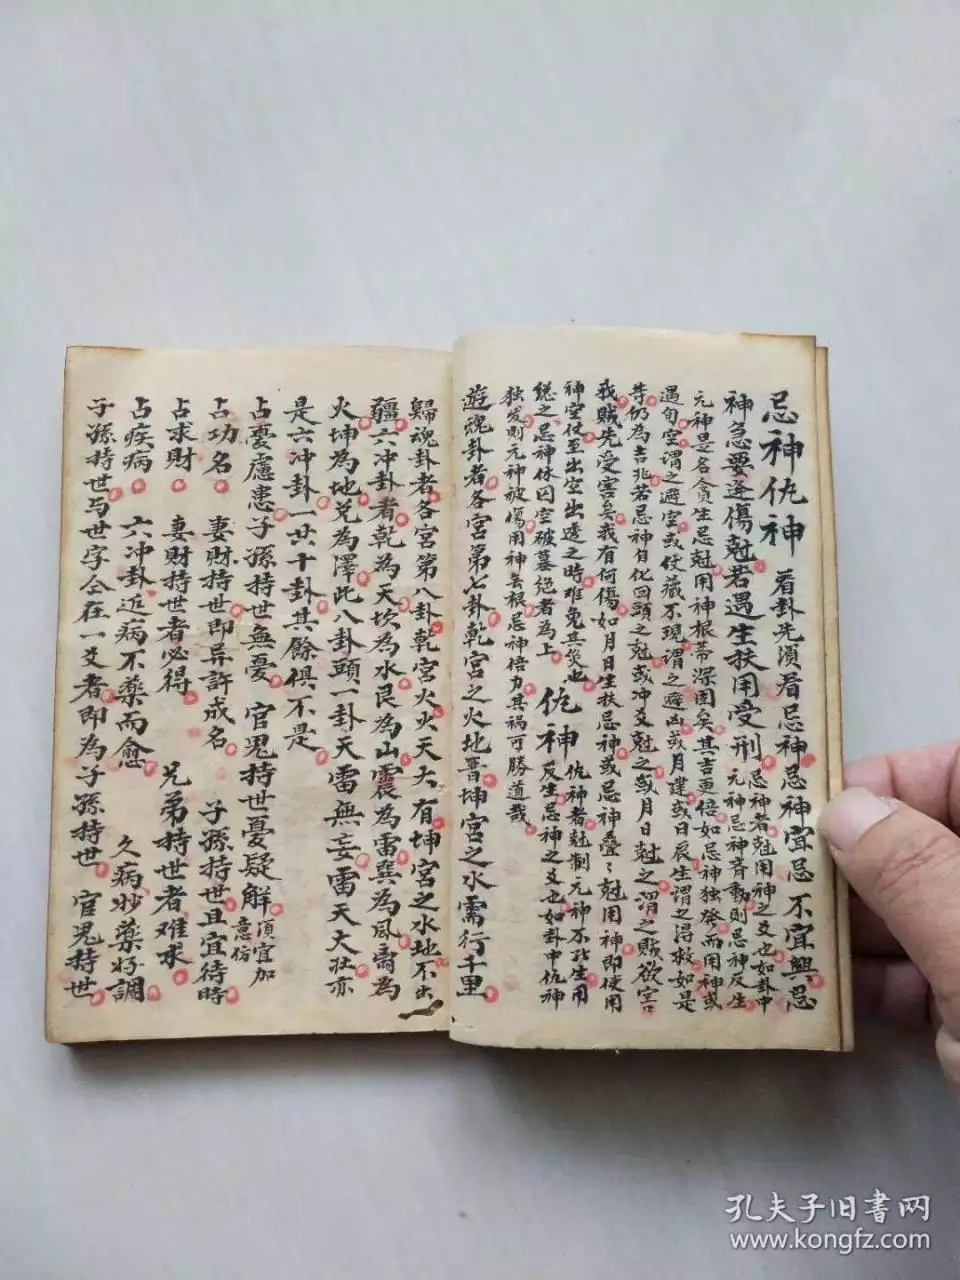 忌神仇神 看卦先須看忌神忌神宜忌不宜興忌
神急要逢傷尅若遇生扶用受刑忌神者尅用神之爻也如卦中
元神忌神齊動則忌神反生
元神是各貪生忌尅用神根蒂深固矣其吉更倍如忌神独發而用神或
遇旬空謂之避空或伏藏不現謂之避凶或月建或日辰生謂之得救如是
等仍為吉兆若忌神自化回頭之尅或冲爻尅之或月日尅之謂之賊欲害
我賊先受害矣我有何傷如月日生扶忌神或忌神疊疊尅用神即使用
神空伏至出空出透之時难免其災也
總之忌神休囚空破墓絕者為上
仇神 仇神者尅制元神不能生用
反生忌神之爻也如卦中仇神
独发則元神被傷用神無根忌神倍力其禍可勝道哉
遊魂卦者各宮第七卦乾宮之火地晋坤宮之水需行千里
歸魂卦者各宮第八卦乾宮火火天大有坤宮之水地不出
疆六冲卦者乾為天坎為水艮為山震為雷巽為風离為
火坤為地兌為澤此八卦頭一卦天雷無妄雷天大壯亦
是六冲卦一共十卦其餘俱不是
占憂慮患子孫持世無憂 官鬼持世憂疑解須宜加
意彷
占功名 妻財持世即异許成名 子孫持世且宜待時
占求財 妻財持世者必得 兄弟持世者难求
占疾病 六冲卦近病不藥而愈 久病妙藥好調
子孫持世与世字会在一爻者即為子孫持世 官鬼持世
孔夫子旧書网
www.kongfz.com